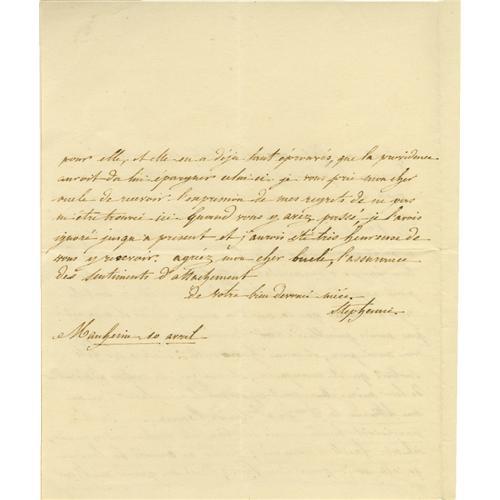 pour elle, et elle en a déja tant éprouvés, que la providence
auroit du lui épargner celui ci. je vous prie mon cher
oncle de recevoir l'expression de mes regrets de ne pas
m'être trouvée ici quand vous y avez passé, je l'avois
ignoré jusqu'a present et j'aurois été très heureuse de
vous y recevoir. agréez mon cher oncle, l'assurance
des sentiments d'attachement
de votre bien devouée niéce
Stephanie
Manheim 10 avril